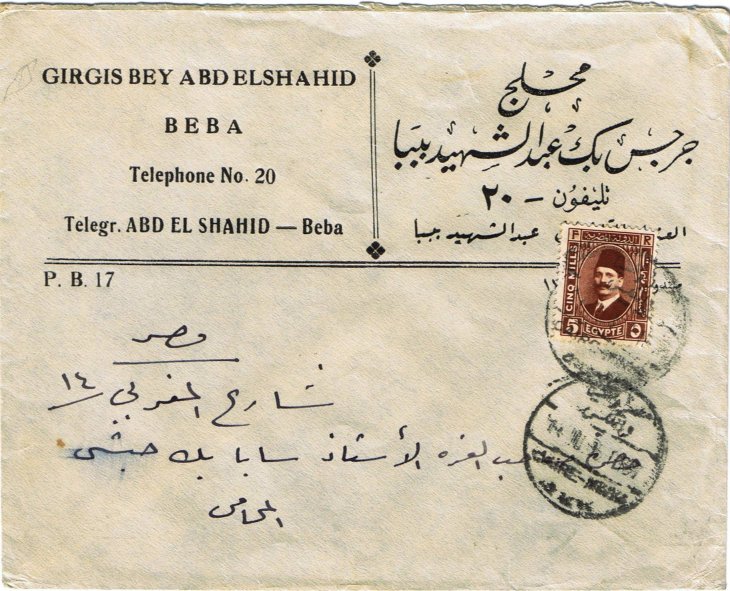 GIRGIS BEY ABD ELSHAHID
BEBA
Telephone No. 20
Telegr. ABD EL SHAHID — Beba
P. B. 17
محلج
جرجس بك عبد الشهيد بببا
تليفون - ٢٠
عبد الشهيد ببا
F R
CINQ MILLS
5 ٥
EGYPTE
مصر
شارع المغربي ١٤
العزه الأستاذ سابا بك حبشى
المحامى